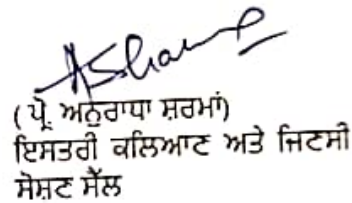 ASharma
(ਪ੍ਰੋ. ਅਨੁਰਾਧਾ ਸ਼ਰਮਾਂ)
ਇਸਤਰੀ ਕਲਿਆਣ ਅਤੇ ਜਿਣਸੀ
ਸੋਸ਼ਣ ਸੈੱਲ